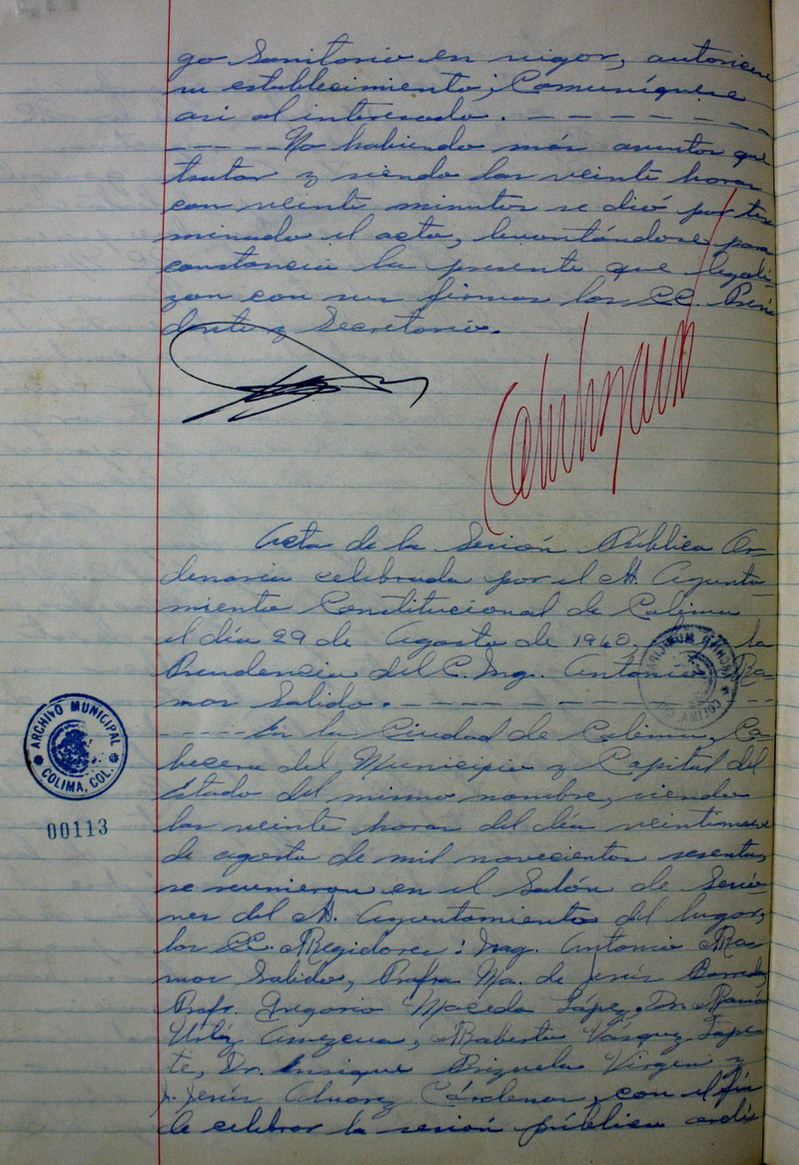 go Sanitario en vigor, autorícese
su establecimiento; Comuníquese
así al interesado. - - - - - - - -
- - - - No habiendo más asuntos que
tratar y siendo las veinte horas
con veinte minutos se dió por ter
minado el acto, levantándose para
constancia la presente que legali-
zan con sus firmas los CC. Presi
dente y Secretario.
Acta de la Sesión Pública Or-
denaria celebrada por el H. Ayunta-
miento Constitucional de Colima
el día 29 de Agosto de 1960, la
Presidencia del C. Ing. Antonio Ra-
mos Salido. - - - - - - - - - - -
- - - - En la Ciudad de Colima, Ca-
becera del Municipio y Capital del
Estado del mismo nombre, siendo
las veinte horas del día veintinueve
de agosto de mil novecientos sesenta,
se reunieron en el Salón de Sesio-
nes del H. Ayuntamiento del lugar,
los CC. Regidores: Ing. Antonio Ra-
mos Salido, Profra. Ma. de Jesús
Profr. Gregorio Macedo López, Dr. Ramón
Amezcua, Roberto Vásquez Tapis-
te, Dr. Enrique Brizuela Virgen y
J. Jesús Alvarez Cárdenas, con el fin
de celebrar la sesión pública ordi
ARCHIVO MUNICIPAL
COLIMA, COL.
00113